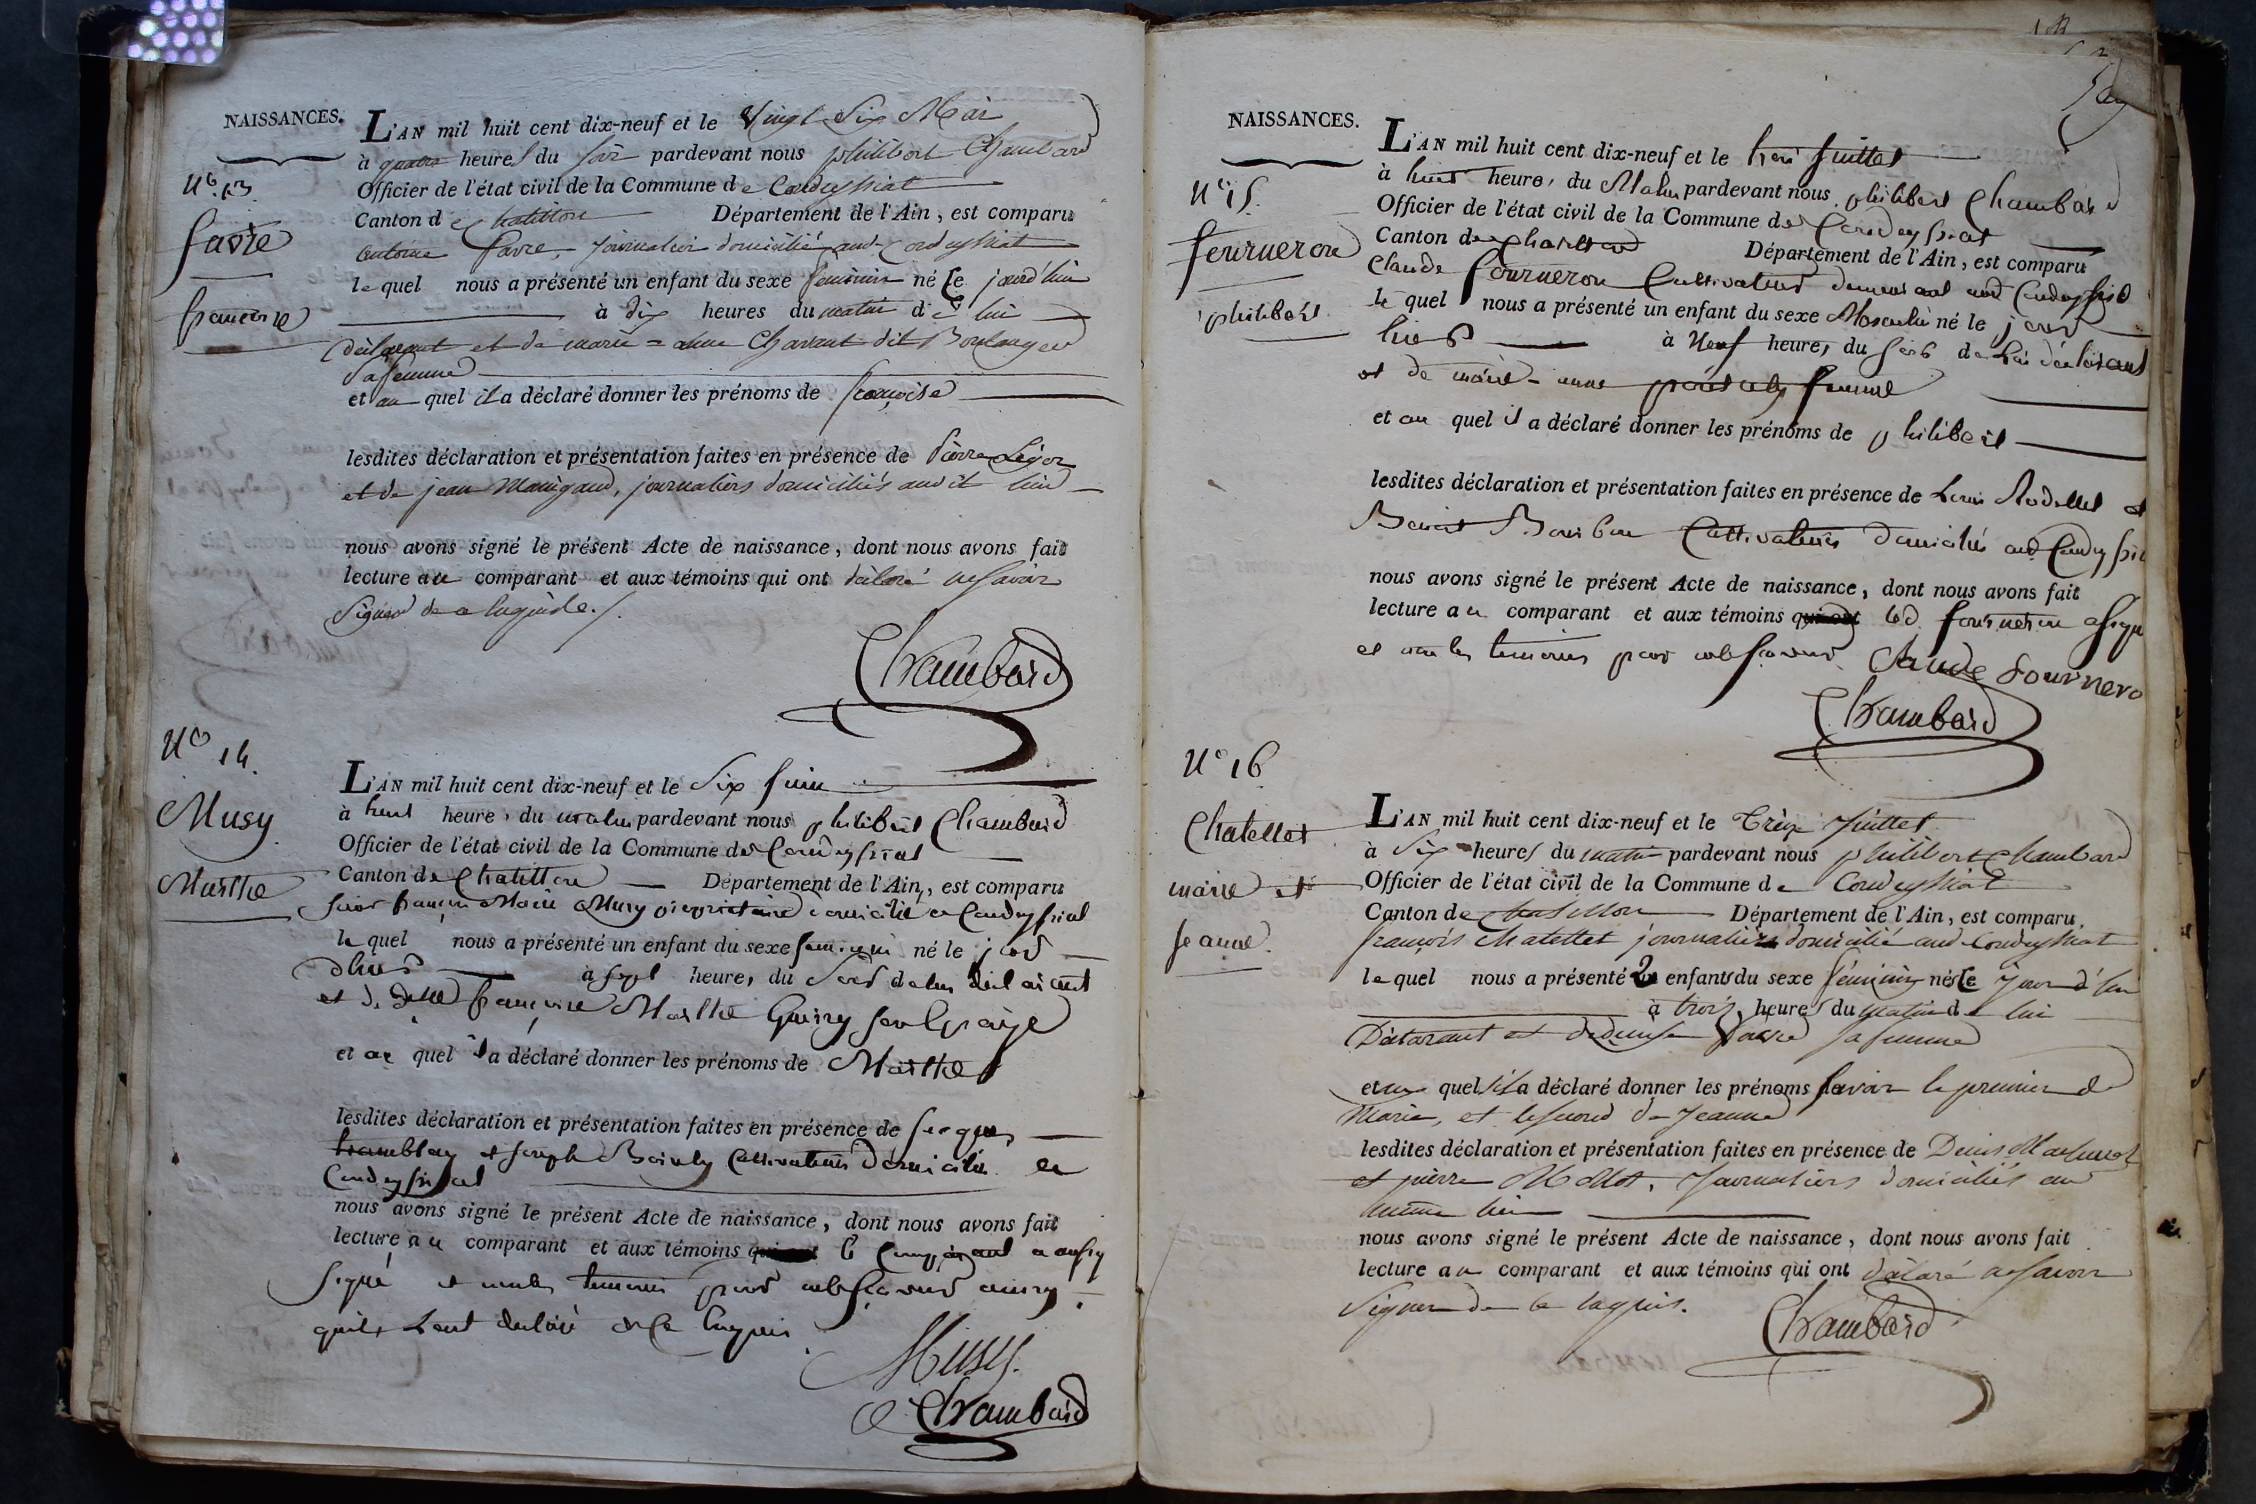 NAISSANCES.
N.º 13.
favre
françoise
L'AN mil huit cent dix-neuf et le Vingt Six Mai
à quatre heures du soir pardevant nous philibert Chambard
Officier de l'état civil de la Commune de Condeyssiat
Canton de Chatillon Département de l'Ain, est comparu
antoine favre, journalier domicilié aud. Condeyssiat
le quel nous a présenté un enfant du sexe feminin né ce jourd'hui
à dix heures du matin de lui
déclarant et de marie = anne Charant dit Boulanger
sa femme
et au quel il a déclaré donner les prénoms de françoise
lesdites déclaration et présentation faites en présence de Pierre Léger
et de jean Manigand, journaliers domiciliés audit lieu
nous avons signé le présent Acte de naissance, dont nous avons fait
lecture au comparant et aux témoins qui ont déclaré ne savoir
signer de ce enquis.
Chambard
Nº 14.
Musy
Marthe
L'AN mil huit cent dix-neuf et le Six juin
à huit heure, du matin pardevant nous philibert Chambard
Officier de l'état civil de la Commune de Condeyssiat
Canton de Chatillon Département de l'Ain, est comparu
françois Marie Musy proprietaire domicilié a Condeyssiat
le quel nous a présenté un enfant du sexe feminin né le jour
d'hier à sept heure, du soir de lui declarant
et de françoise Marthe
et au quel il a déclaré donner les prénoms de Marthe
lesdites déclaration et présentation faites en présence de
tramblay et joseph Cultivateurs domicilié en
Condeyssiat
nous avons signé le présent Acte de naissance, dont nous avons fait
lecture au comparant et aux témoins le Comparant a aussy
signé et non les temoins pour ne le scavoir ainsy
quils l'ont declaré de ce enquis
Musy
Chambard
NAISSANCES.
Nº 15.
fourneron
philibert
L'AN mil huit cent dix-neuf et le juillet
à huit heure, du Matin pardevant nous philibert Chambard
Officier de l'état civil de la Commune de Condeyssiat
Canton de Chatillon Département de l'Ain, est comparu
Claude fourneron Cultivateur demeurant aud Condeyssiat
le quel nous a présenté un enfant du sexe Masculin né le jour
hier à Neuf heure, du soir de lui déclarant
et de marie = anne femme
et au quel il a déclaré donner les prénoms de philibert
lesdites déclaration et présentation faites en présence de Louis Rodellet et
Benoit Bourbon Cultivateurs domiciliés aud Condeyssiat
nous avons signé le présent Acte de naissance, dont nous avons fait
lecture au comparant et aux témoins led. fourneron a signé
et non les temoins pour ne le scavoir Claude fournero
Chambard
Nº 16
Chatellet
marie et
jeanne.
L'AN mil huit cent dix-neuf et le Treize Juillet
à Six heures du matin pardevant nous philibert Chambard
Officier de l'état civil de la Commune de Condeyssiat
Canton de Chatillon Département de l'Ain, est comparu
françois Chatellet journalier domicilié aud Condeyssiat
le quel nous a présenté 2 enfants du sexe féminin nés ce jour d'hui
à trois heures du matin de lui
Déclarant et de denise favre sa femme
et au quels il a déclaré donner les prénoms savoir le premier de
Marie, et le second de Jeanne
lesdites déclaration et présentation faites en présence de Denis
et pierre Mollot, Journaliers domiciliés au
meme lieu
nous avons signé le présent Acte de naissance, dont nous avons fait
lecture au comparant et aux témoins qui ont déclaré ne savoir
signer de ce enquis.
Chambard